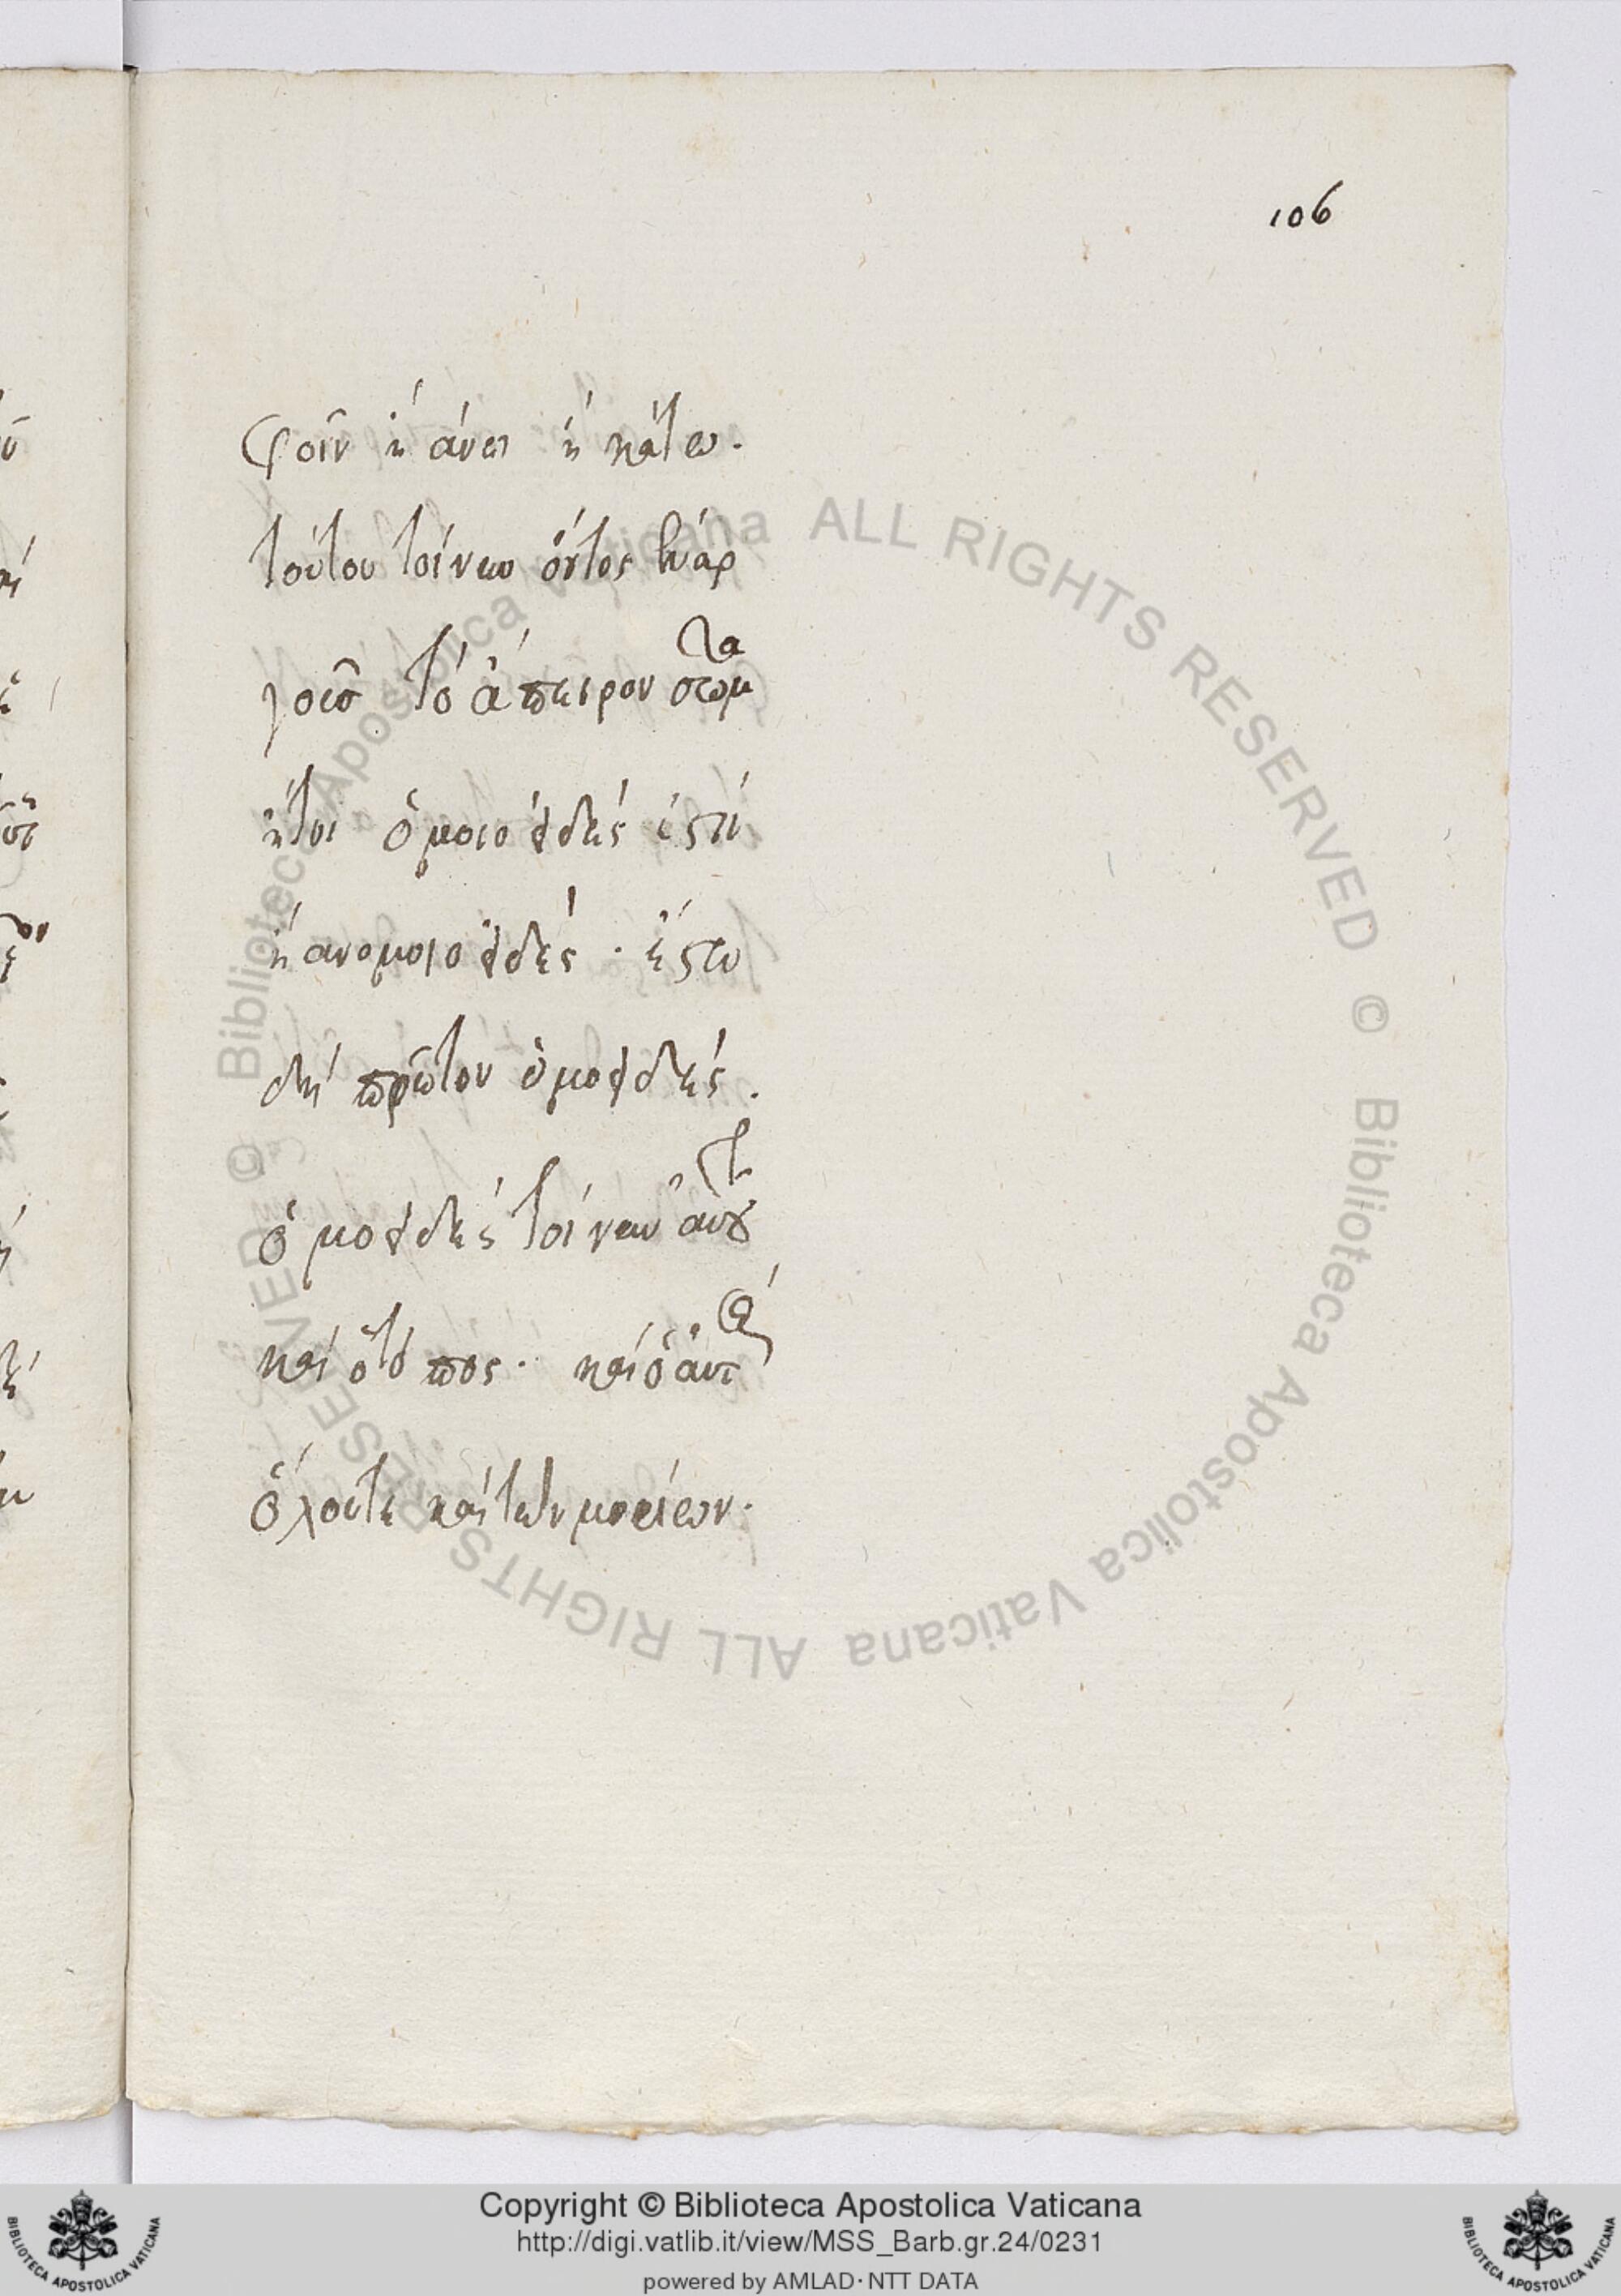 106
φοῖν ἢ ἄνω ἢ κάτω.
τούτου τοίνυν ὄντος ἐναρ
γοῦσ τὸ ἄπειρον σῶμα
ἤτοι ὁμοιοειδές ἐστιν
ἢ ἀνομοιοειδές · ἔστω
δὴ πρῶτον ὁμοειδές.
ὁμοειδές τοίνυν αὐτοῦ
καὶ ὁ τόπος · καὶ ὁ αὐτ
ὅλου τε καὶ τῶν μορίων.
© Biblioteca Apostolica Vaticana ALL RIGHTS RESERVED © Biblioteca Apostolica Vaticana ALL RIGHTS RESERVED
Copyright © Biblioteca Apostolica Vaticana
http://digi.vatlib.it/view/MSS_Barb.gr.24/0231
powered by AMLAD·NTT DATA
BIBLIOTECA APOSTOLICA VATICANA
BIBLIOTECA APOSTOLICA VATICANA